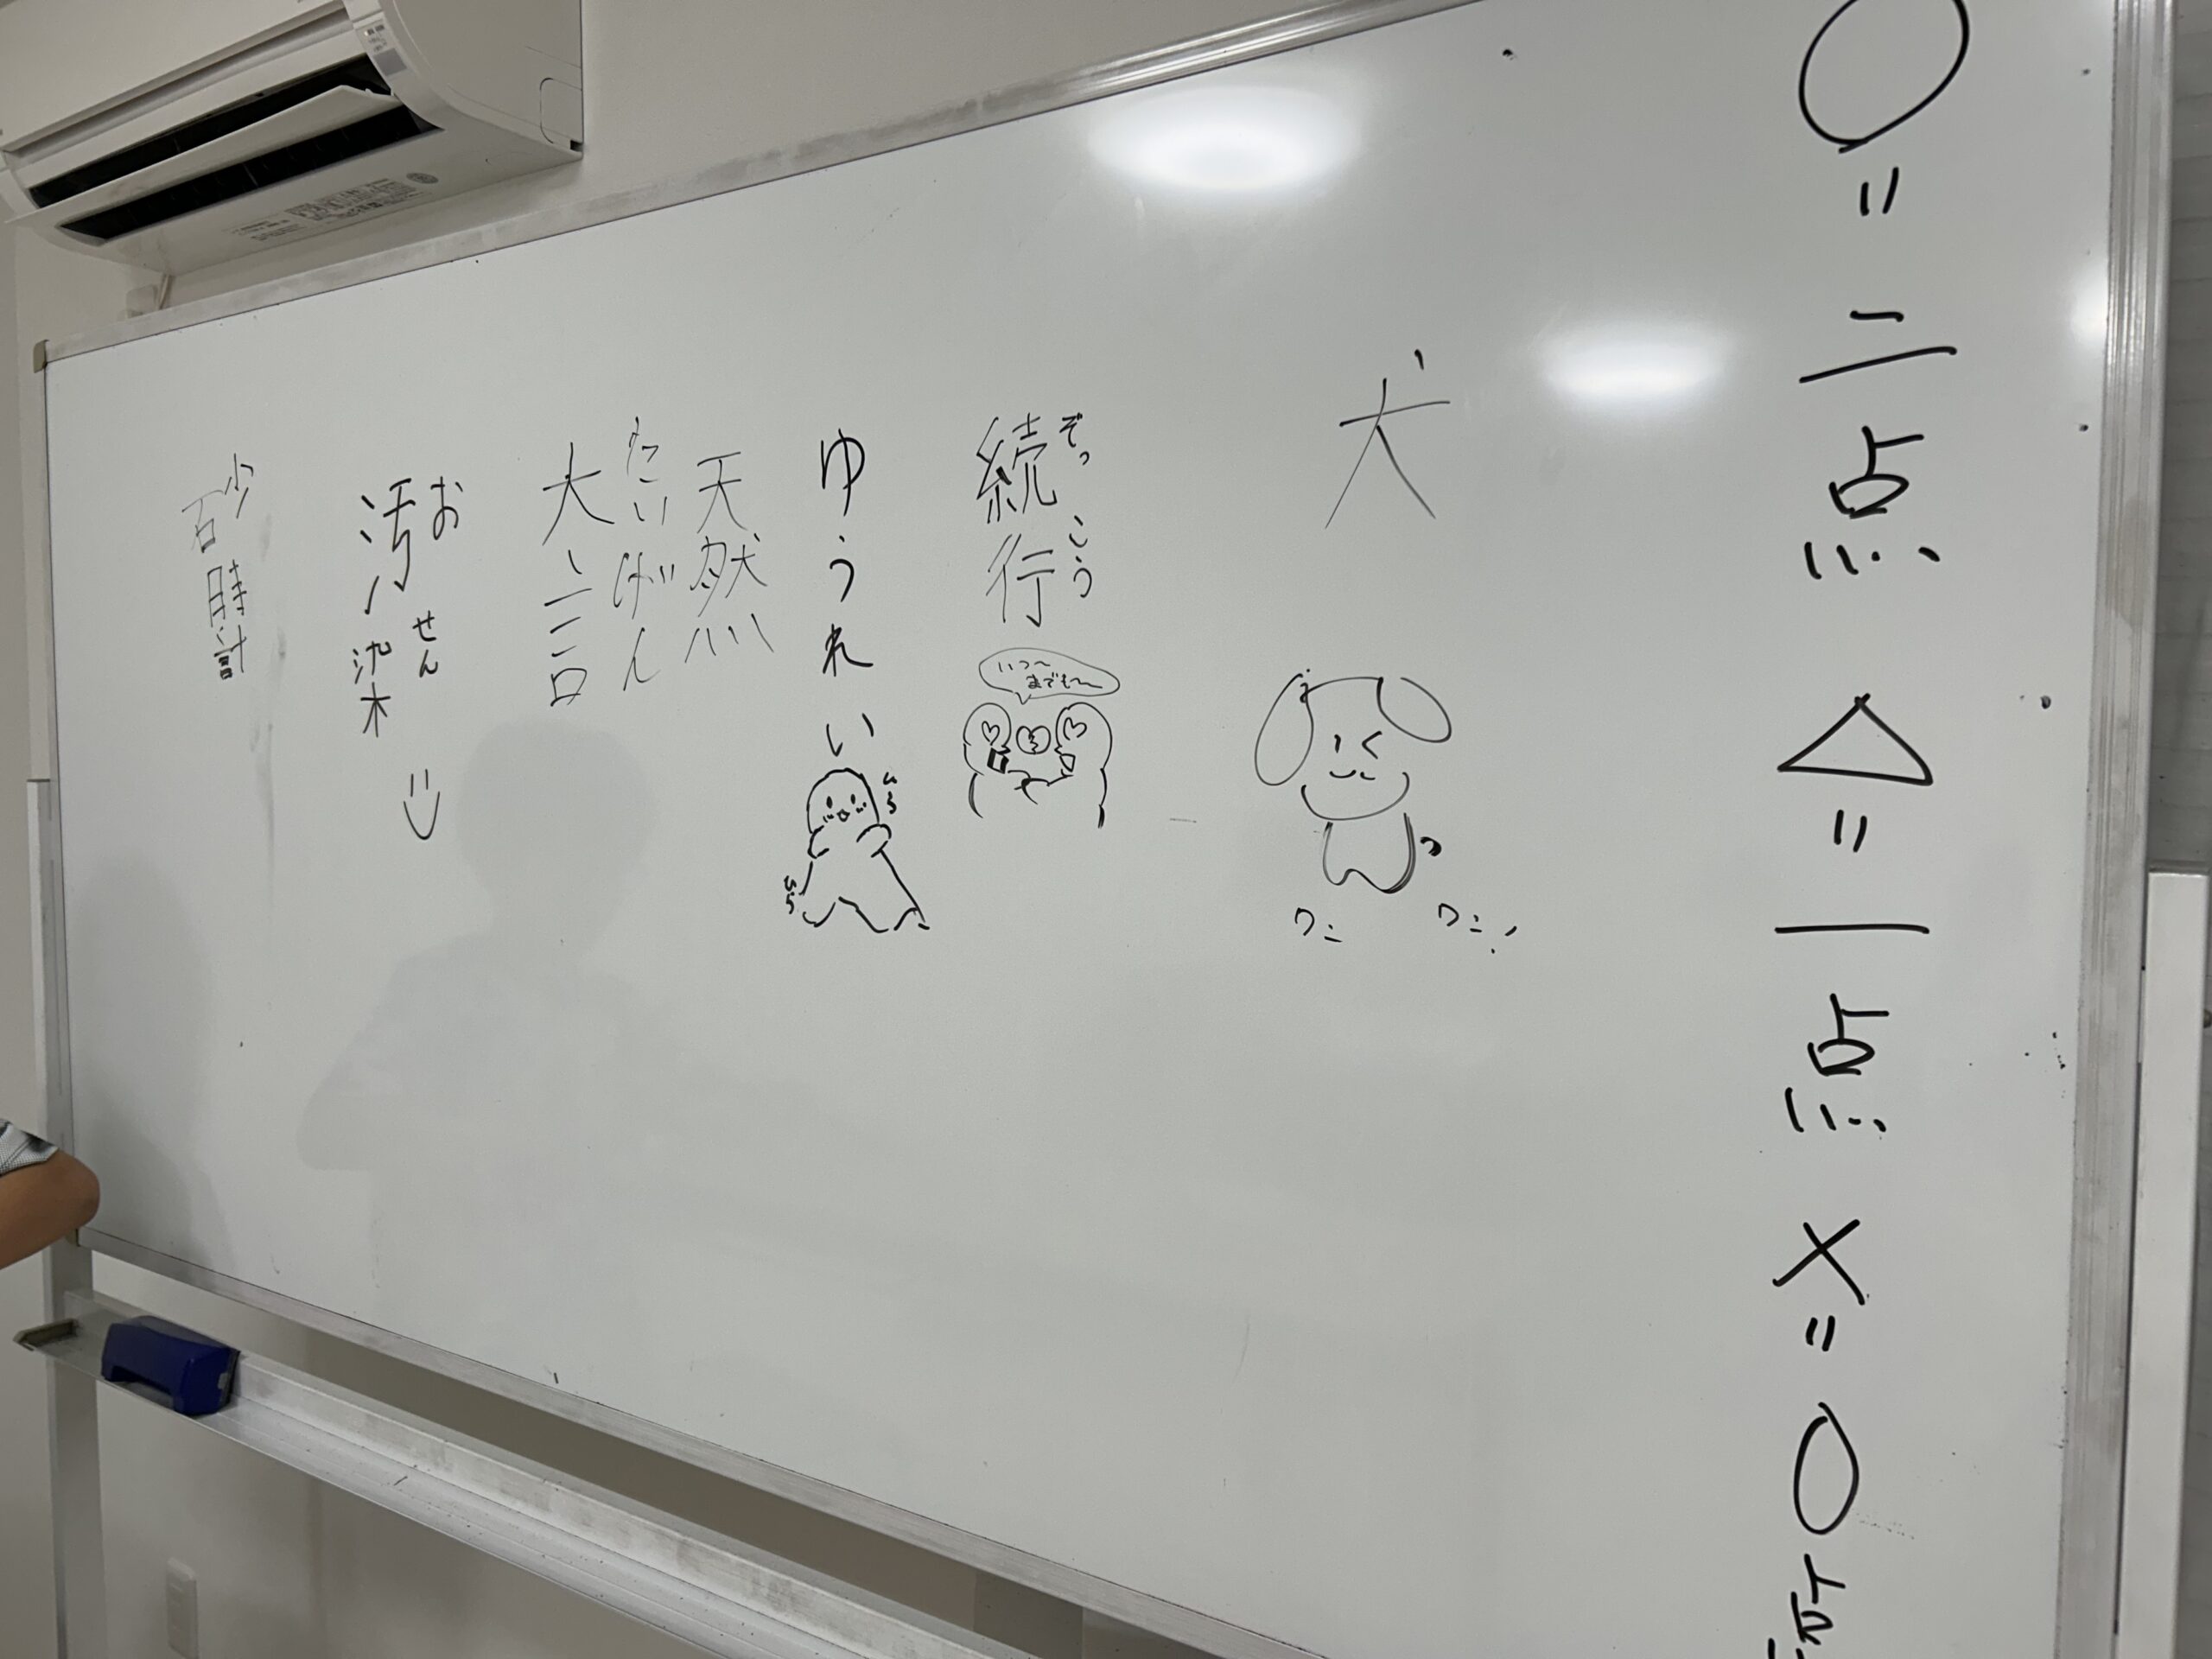 〇=二点 △=一点 ×=〇
犬
ワン
ワン!
ぞっこう
続行
いつ〜
までも〜
ゆうれい
ひら
ひら
天然
たいげん
大言
おせん
汚染
砂時計